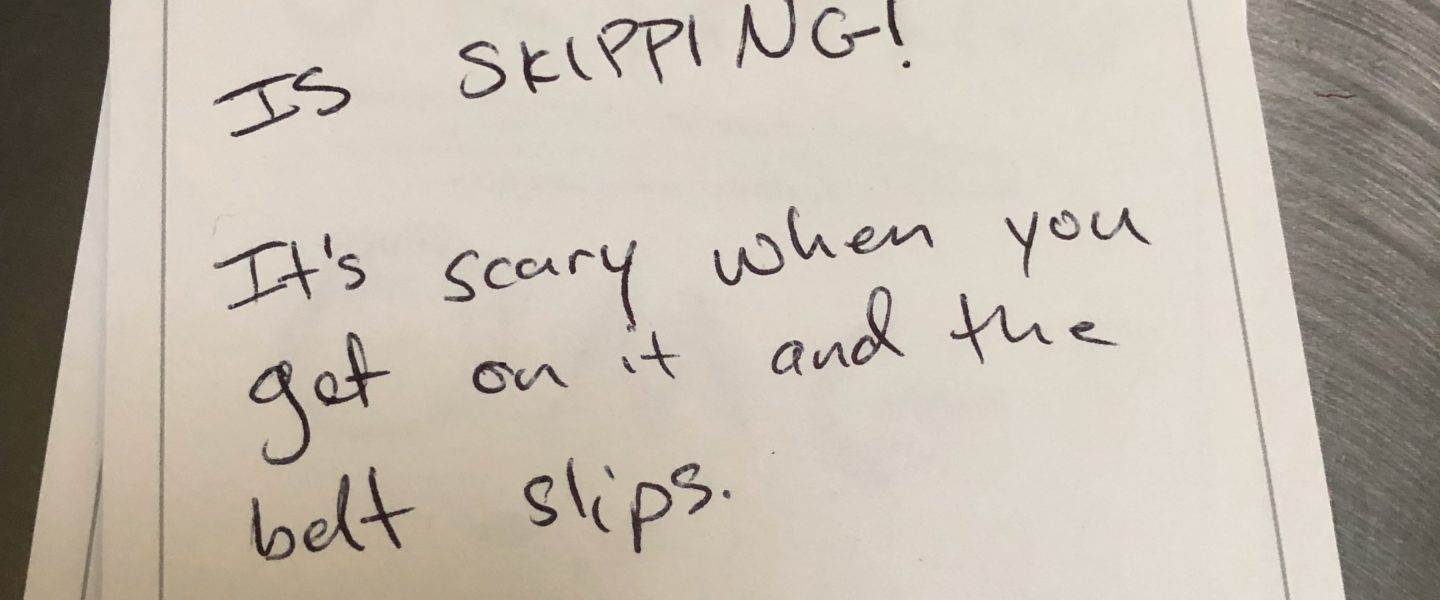 IS SKIPPING!
It's scary when you
get on it and the
belt slips.